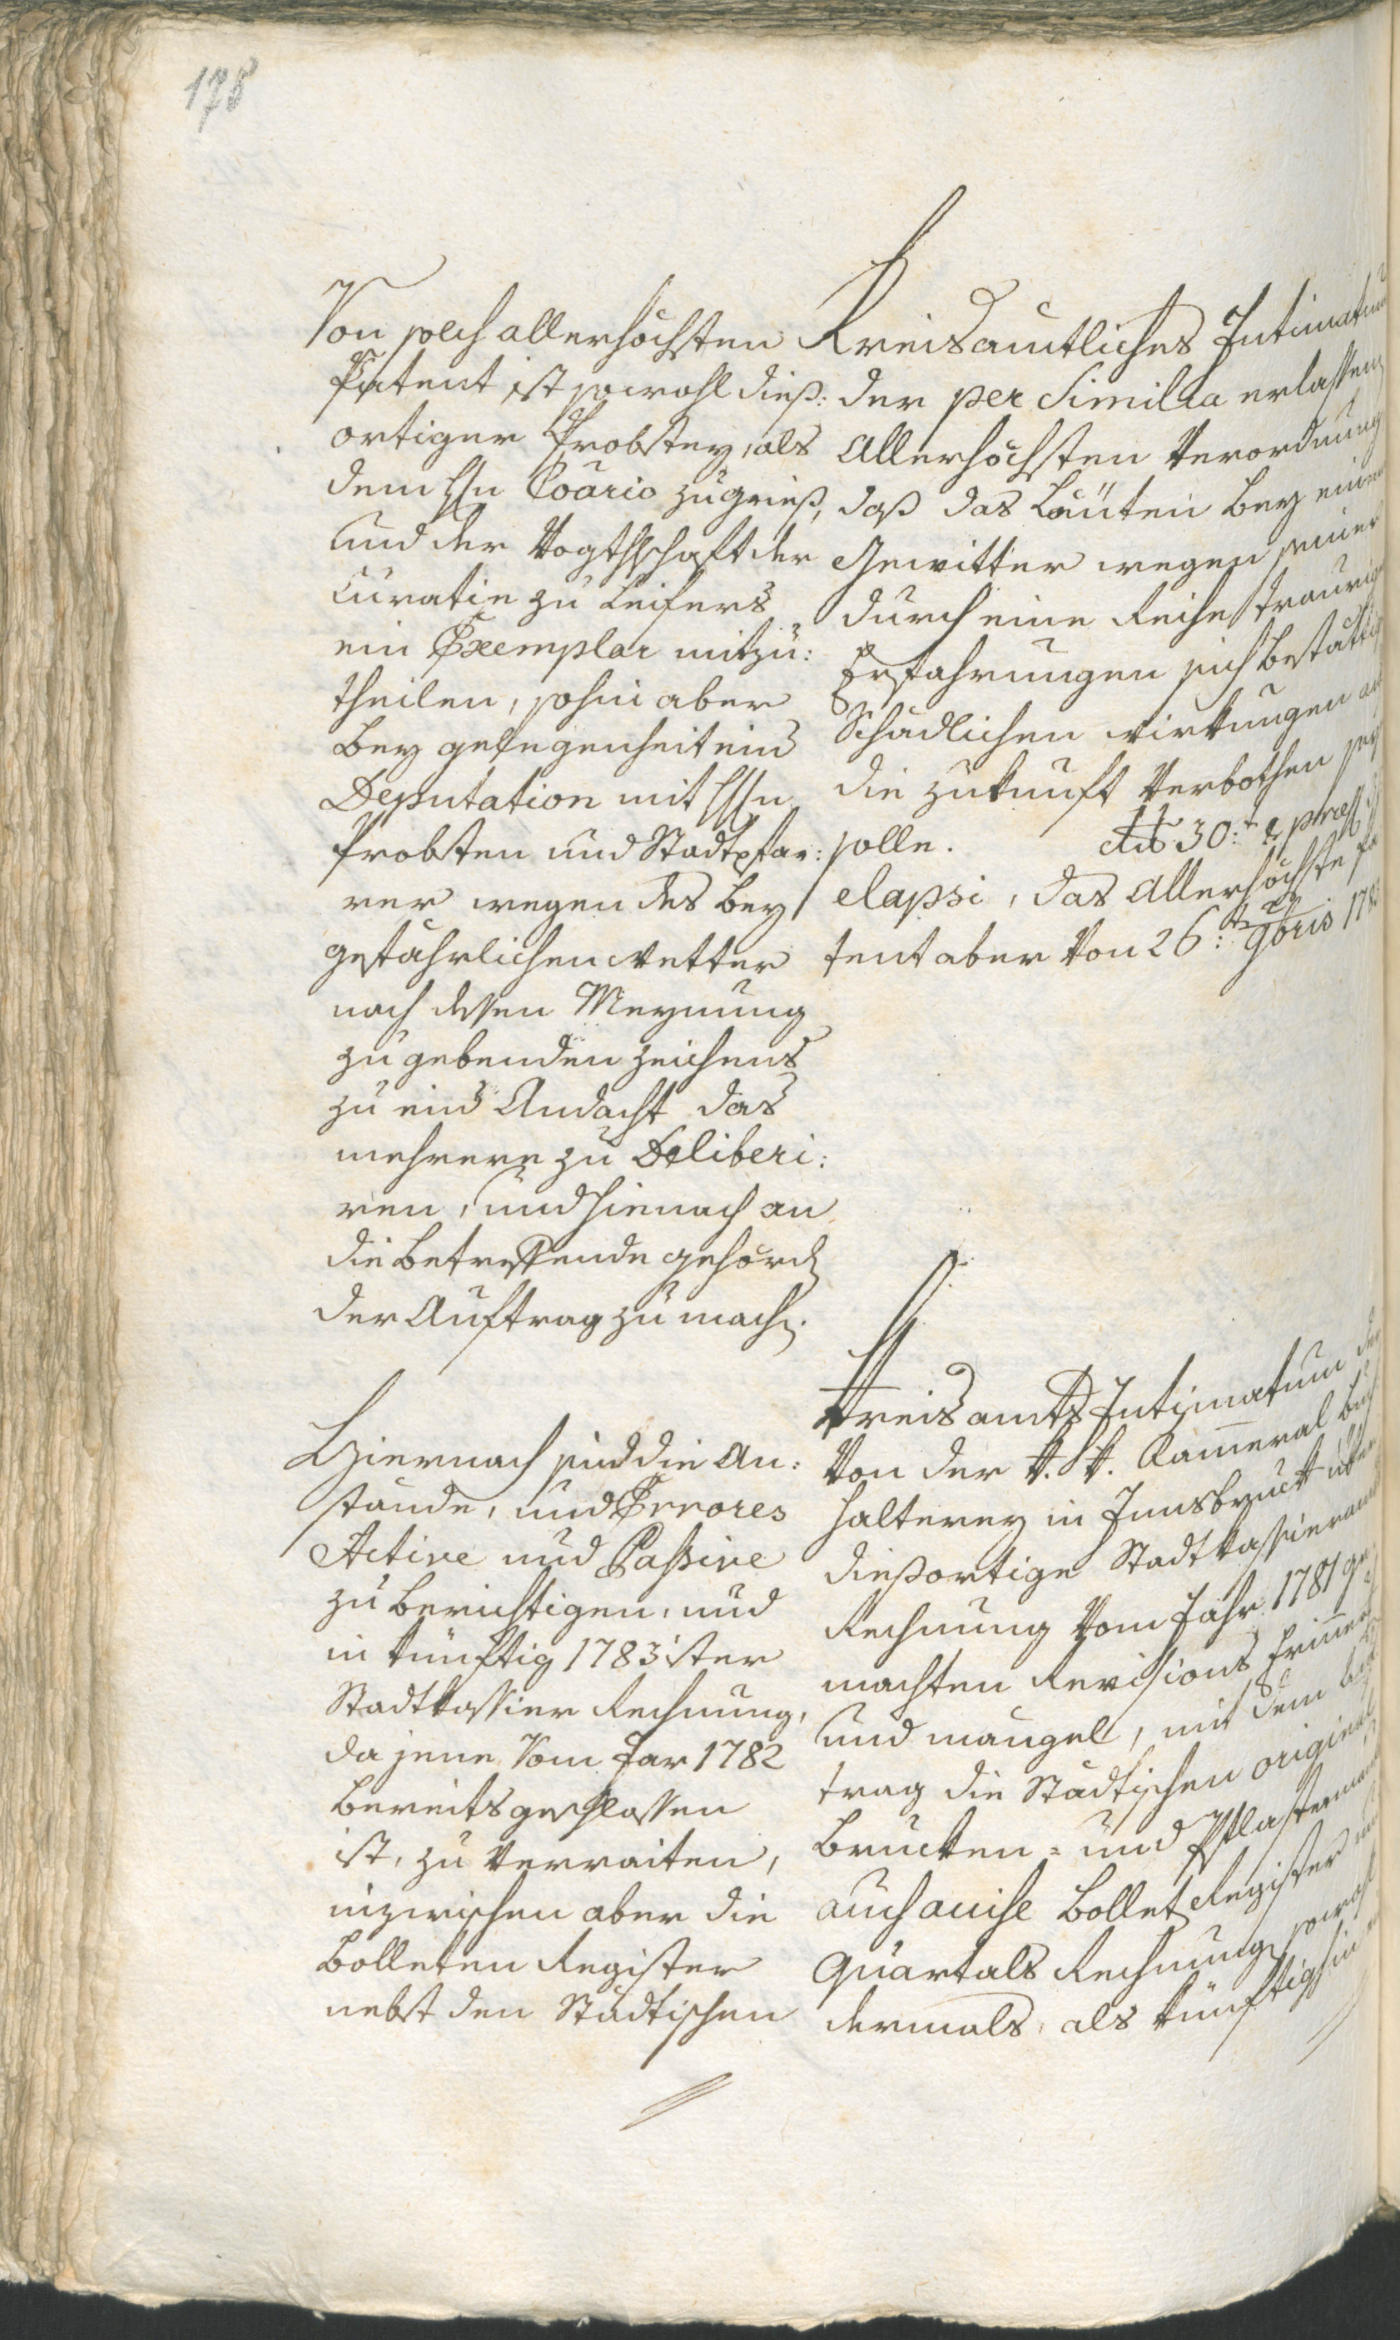 178
Von solch allerhöchsten
Patent ist sowohl dieß:
ortiger Probstey, als
dem Hrn Coärio zu grieß,
Und der Vogthschaft der
Curatie zu Leifers
ein Exemplar mitzu:
theilen, sohin aber
bey gelegenheit einer
Deputation mit Hrn
Probsten und Stadtpfar:
rer wegen des bey
gefährlichen wetter
nach dessen Meynung
zu gebenden zeichens
zu einer Andacht das
mehrere zu Deliberi:
ren, und hienach an
die betreffende gehörd
der Auftrag zu machen.
Hiernach sind die An:
stände, und Errores
Active und Passive
zu berichtigen, und
in künftig 1783ister
Stadtkassier Rechnung,
da jene Vom Jar 1782
bereits geschlossen
ist, zu verraiten,
inzwischen aber die
Bolleten Register
nebst den Städtischen
Kreisämtliches Intimatum
der per Similia erlassen
Allerhöchsten Verordnung
daß das Läuten bey einem
Gewitter wegen seiner
durch eine Reihe traurig
Erfahrungen sich bestättig
Schädlichen wirkungen auf
die zukunft Verbothen seyn
solle. dd 30:t
elapsi, das Allerhöchste Pa
tent aber Von 26:t 9bris 178
Kreisamts Intimatum der
Von der k. k. Kammeral buch
halterey in Innsbruck über
dießortige Stadtkassieramts
Rechnung Vom Jahr 1781 ge
machten Revisions
Und mängel, mit dem
trag die Städtischen original
brucken- und Pflaster
auch Bollet Register und
Quartals Rechnungen sowohl
dermals, als künftighin